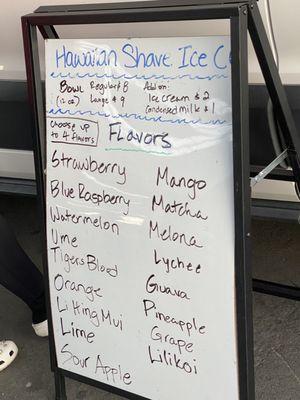 Hawaiian Shave Ice C
Bowl
(12 oz)
Regular $ 8
Large $ 9
Add on:
Ice cream $ 2
Condensed milk $ 1
Choose up
to 4 flavors
Flavors
Strawberry
Blue Raspberry
Watermelon
Ume
Tigers Blood
Orange
Li Hing Mui
Lime
Sour Apple
Mango
Matcha
Melona
Lychee
Guava
Pineapple
Grape
Lilikoi